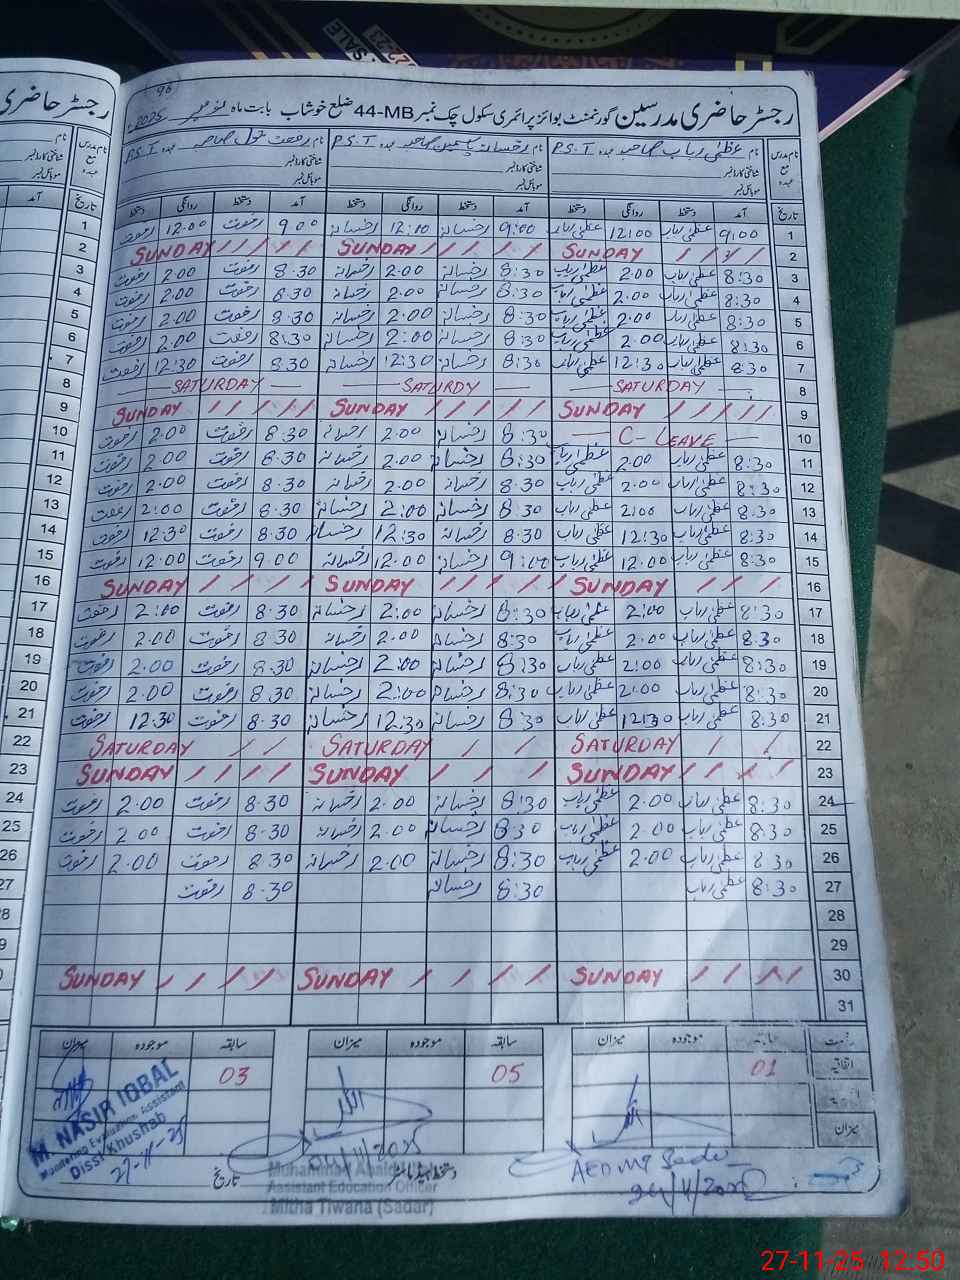 رجسٹر حاضری مدرسین گورنمنٹ بوائز پرائمری سکول چک نمبر 44-MB ضلع خوشاب بابت ماہ نومبر 2025ء
نام مدرس مع عہدہ نام عظمیٰ رباب صاحبہ عہدہ P.S.T نام رخسانہ یاسمین صاحبہ عہدہ P.S.T نام رفعت بتول صاحبہ عہدہ P.S.T
شناختی کارڈ نمبر شناختی کارڈ نمبر شناختی کارڈ نمبر
موبائل نمبر موبائل نمبر موبائل نمبر
تاریخ آمد دستخط روانگی دستخط آمد دستخط روانگی دستخط آمد دستخط روانگی دستخط تاریخ
1 9:00 عظمیٰ رباب 12:00 عظمیٰ رباب 9:00 رخسانہ 12:00 رخسانہ 9.00 رفعت 12.00 رفعت 1
2 SUNDAY SUNDAY SUNDAY 2
3 8:30 عظمیٰ رباب 2.00 عظمیٰ رباب 8:30 رخسانہ 2.00 رخسانہ 8.30 رفعت 2.00 رفعت 3
4 8:30 عظمیٰ رباب 2.00 عظمیٰ رباب 8:30 رخسانہ 2.00 رخسانہ 8.30 رفعت 2.00 رفعت 4
5 8:30 عظمیٰ رباب 2.00 عظمیٰ رباب 8:30 رخسانہ 2.00 رخسانہ 8.30 رفعت 2.00 رفعت 5
6 8:30 عظمیٰ رباب 2.00 عظمیٰ رباب 8:30 رخسانہ 2:00 رخسانہ 8:30 رفعت 2.00 رفعت 6
7 8:30 عظمیٰ رباب 12:30 عظمیٰ رباب 8:30 رخسانہ 12:30 رخسانہ 8.30 رفعت 12:30 رفعت 7
8 SATURDAY SATURDY SATURDAY 8
9 SUNDAY SUNDAY SUNDAY 9
10 C-LEAVE 8:30 رخسانہ 2.00 رخسانہ 8.30 رفعت 2.00 رفعت 10
11 8:30 عظمیٰ رباب 2.00 عظمیٰ رباب 8:30 رخسانہ 2.00 رخسانہ 8.30 رفعت 2.00 رفعت 11
12 8:30 عظمیٰ رباب 2.00 عظمیٰ رباب 8.30 رخسانہ 2.00 رخسانہ 8.30 رفعت 2.00 رفعت 12
13 8:30 عظمیٰ رباب 2:00 عظمیٰ رباب 8:30 رخسانہ 2:00 رخسانہ 8.30 رفعت 2:00 رفعت 13
14 8:30 عظمیٰ رباب 12:30 عظمیٰ رباب 8:30 رخسانہ 12:30 رخسانہ 8.30 رفعت 12:30 رفعت 14
15 8:30 عظمیٰ رباب 12.00 عظمیٰ رباب 9:00 رخسانہ 12.00 رخسانہ 9.00 رفعت 12.00 رفعت 15
16 SUNDAY SUNDAY SUNDAY 16
17 8:30 عظمیٰ رباب 2:00 عظمیٰ رباب 8:30 رخسانہ 2:00 رخسانہ 8.30 رفعت 2:00 رفعت 17
18 8:30 عظمیٰ رباب 2.00 عظمیٰ رباب 8:30 رخسانہ 2.00 رخسانہ 8.30 رفعت 2.00 رفعت 18
19 8:30 عظمیٰ رباب 2:00 عظمیٰ رباب 8:30 رخسانہ 2:00 رخسانہ 8.30 رفعت 2.00 رفعت 19
20 8:30 عظمیٰ رباب 2:00 عظمیٰ رباب 8:30 رخسانہ 2:00 رخسانہ 8.30 رفعت 2.00 رفعت 20
21 8:30 عظمیٰ رباب 12:30 عظمیٰ رباب 8:30 رخسانہ 12:30 رخسانہ 8.30 رفعت 12.30 رفعت 21
22 SATURDAY SATURDAY SATURDAY 22
23 SUNDAY SUNDAY SUNDAY 23
24 8:30 عظمیٰ رباب 2.00 عظمیٰ رباب 8:30 رخسانہ 2.00 رخسانہ 8.30 رفعت 2.00 رفعت 24
25 8:30 عظمیٰ رباب 2.00 عظمیٰ رباب 8:30 رخسانہ 2.00 رخسانہ 8.30 رفعت 2.00 رفعت 25
26 8:30 عظمیٰ رباب 2.00 عظمیٰ رباب 8:30 رخسانہ 2.00 رخسانہ 8.30 رفعت 2.00 رفعت 26
27 8:30 عظمیٰ رباب 8:30 رخسانہ 8.30 رفعت 27
28
29
30 SUNDAY SUNDAY SUNDAY 30
31
رخصت سابقہ موجودہ میزان سابقہ موجودہ میزان سابقہ موجودہ میزان
اتفاقیہ 01 05 03
میزان
M. NASIR IQBAL
Monitoring Evaluation Assistant
Distt Khushab
27-11-25
تاریخ
Assistant Education Officer
Mitha Tiwana (Sadar)
27-11-25 12:50